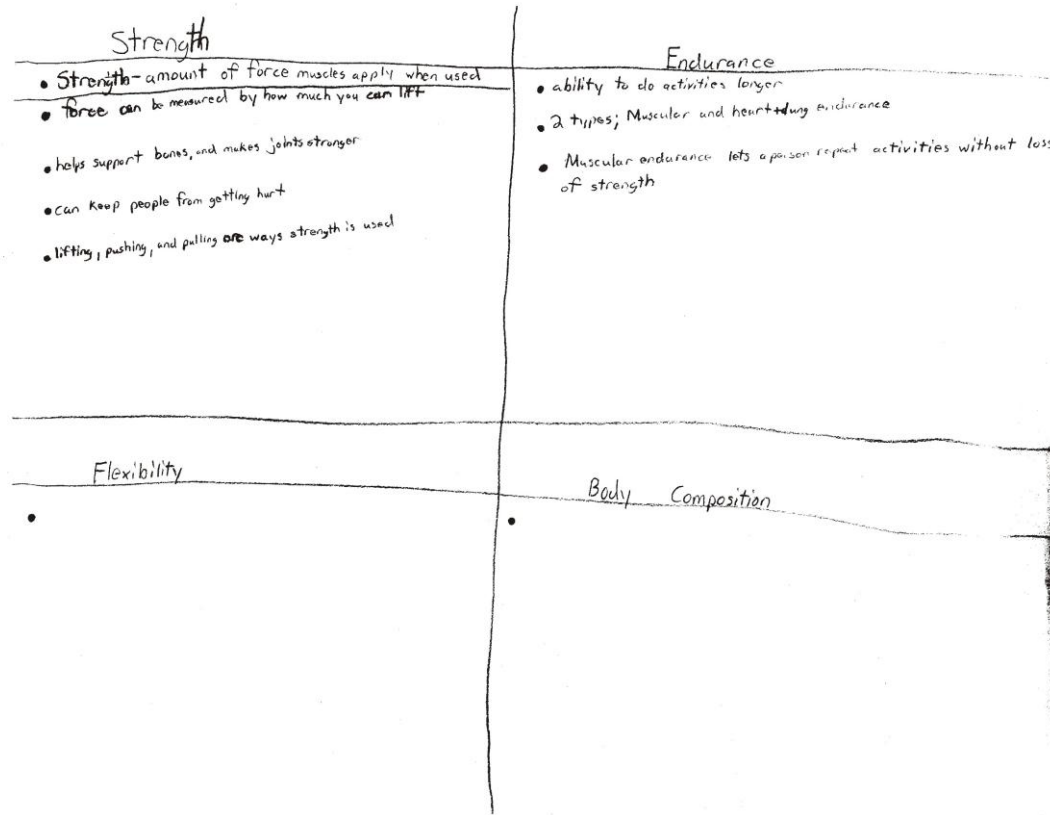 Strength
• Strength - amount of force muscles apply when used
• force can be measured by how much you can lift
• helps support bones, and makes joints stronger
• can keep people from getting hurt
• lifting, pushing, and pulling are ways strength is used
Endurance
• ability to do activities longer
• 2 types; Muscular and heart+lung endurance
• Muscular endurance lets a person repeat activities without loss
of strength
Flexibility
•
Body Composition
•